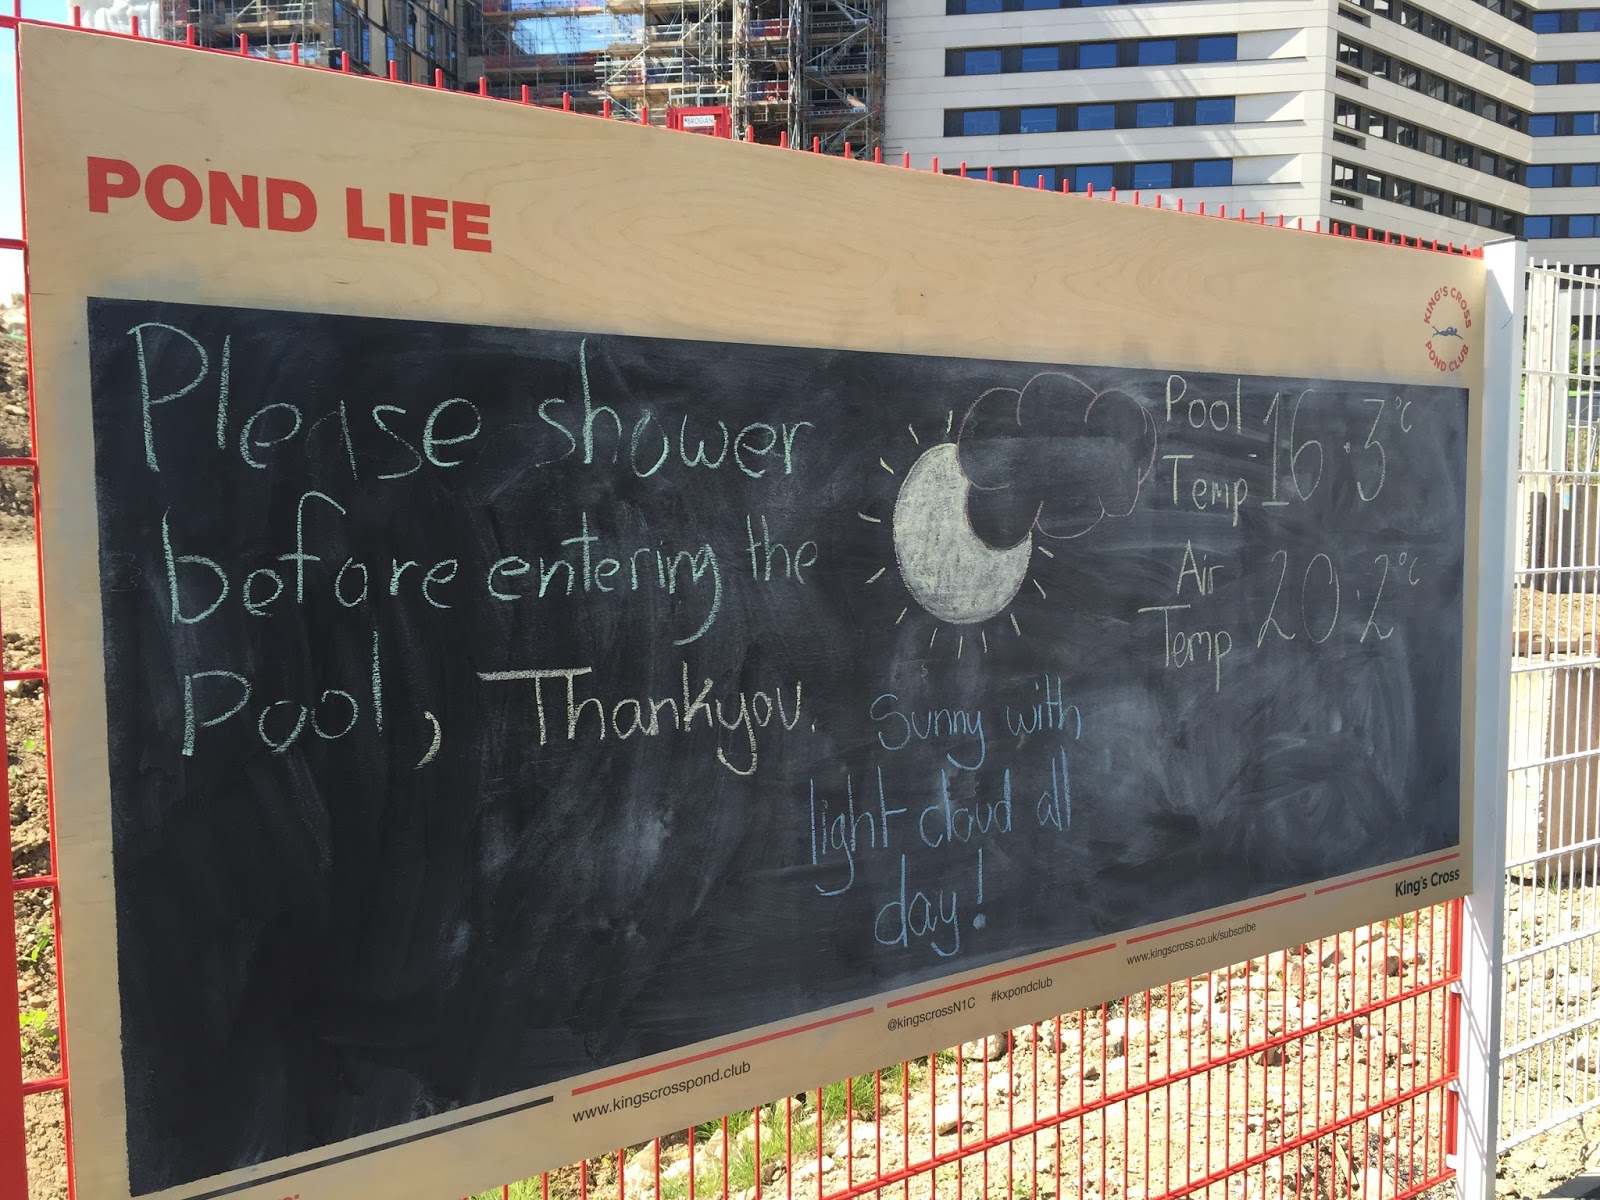 BROGAN
POND LIFE
KING'S CROSS
POND CLUB
Please shower
before entering the
Pool, Thankyou.
Sunny with
light cloud all
day!
Pool
Temp 16.3°C
Air
Temp 20.2°C
King's Cross
www.kingscross.co.uk/subscribe
@kingscrossN1C #kxpondclub
www.kingscrosspond.club